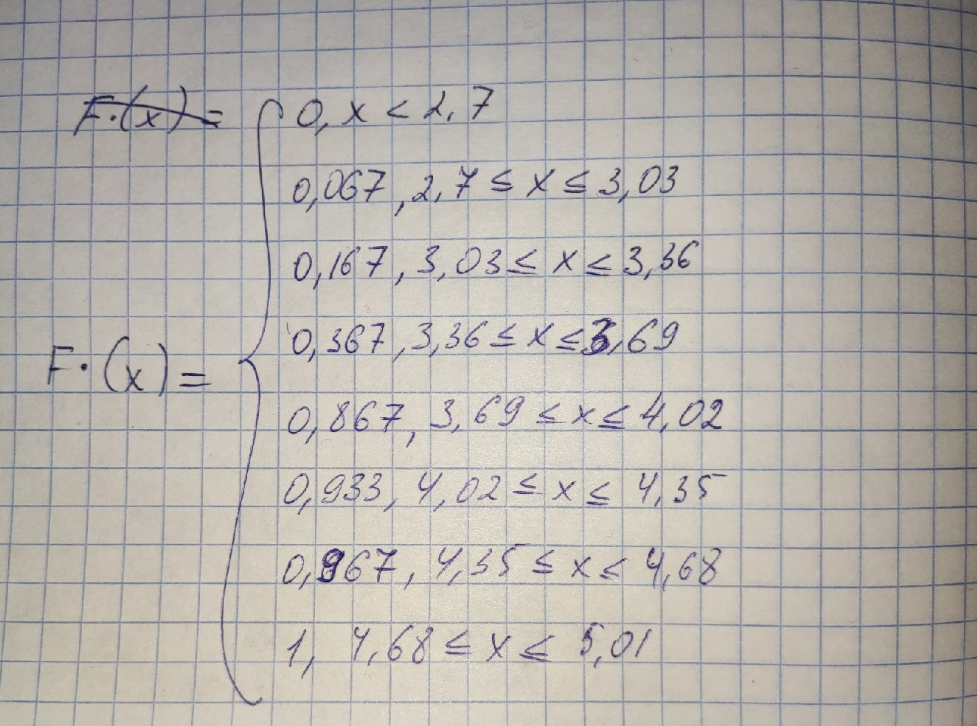 F·(x) = 0, x < 2,7
0,067, 2,7 ≤ x ≤ 3,03
0,167, 3,03 ≤ x ≤ 3,36
0,367, 3,36 ≤ x ≤ 3,69
F·(x) =
0,867, 3,69 ≤ x ≤ 4,02
0,933, 4,02 ≤ x ≤ 4,35
0,967, 4,35 ≤ x ≤ 4,68
1, 4,68 ≤ x ≤ 5,01